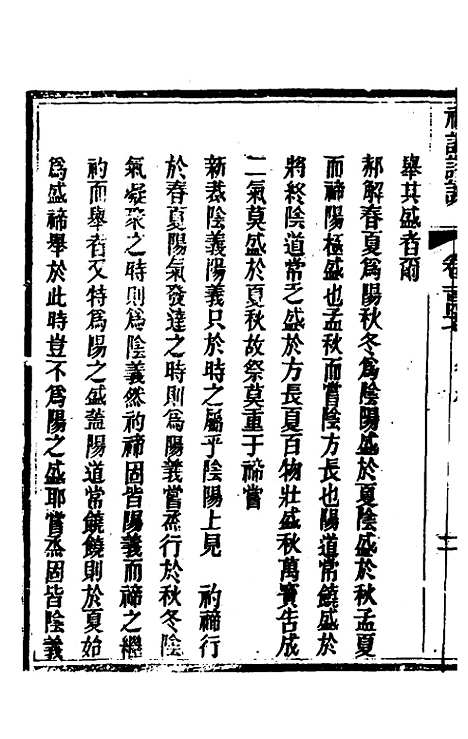 舉其盛者爾
郝解春夏爲陽秋冬爲陰陽盛於夏陰盛於秋孟夏
而禘陽極盛也孟秋而嘗陰方長也陽道常饒盛於
將終陰道常乏盛於方長夏百物壯盛秋萬寶告成
二氣莫盛於夏秋故祭莫重于禘嘗
新裁陰義陽義只於時之屬乎陰陽上見　礿禘行
於春夏陽氣發達之時則爲陽義嘗烝行於秋冬陰
氣凝聚之時則爲陰義然礿禘固皆陽義而禘之繼
礿而舉者又特爲陽之盛蓋陽道常饒饒則於夏始
爲盛禘舉於此時豈不爲陽之盛耶嘗烝固皆陰義